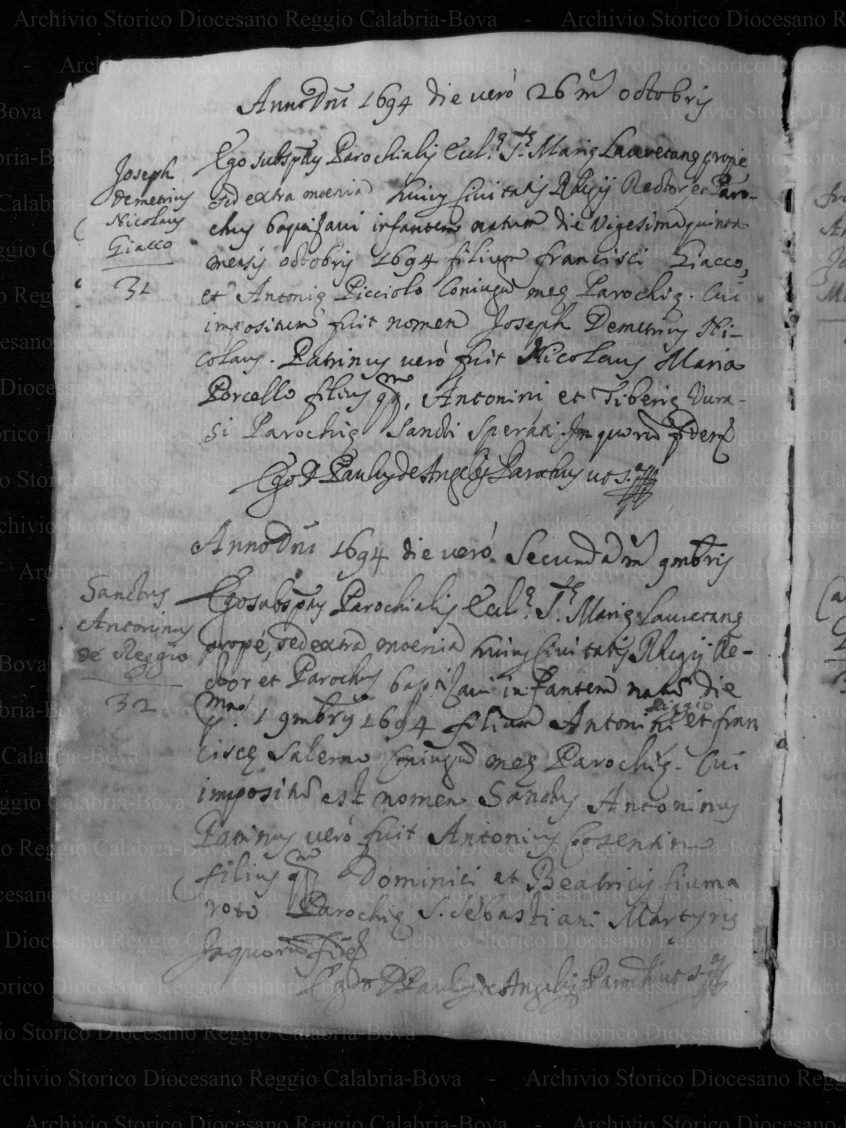 Anno Dni 1694 die veró 26 m octobris
Joseph
Demetrius
Nicolaus
Giacco
31
Ego subsptus Parochialis Eccl.ę S.tę Marię Lauretanę propè
sed extra moenia huius Civitatis Rhegij Rector et Paro-
chus baptizavi infantem natum die Vigesima quinta
mensis octobris 1694 filium Francisci Giacco,
et Antonię Picciolo Coniugum meę Parochię. Cui
impositum fuit nomen Joseph Demetrius Ni-
colaus. Patrinus veró fuit Nicolaus Maria
Porcello filius qm. Antonini et Tiberię Vura-
si Parochię Sancti Sperati In quorum fidem
Ego D. Paulus de Angelis Parochus ut s.a
Anno Dni 1694 die veró Secunda m 9mbris
Sanctus
Antoninus
de Reggio
32
Ego subsptus Parochialis Eccl.ę S.tę Marię Lauretanę
propé, sed extra moenia huius Civitatis Rhegij Re-
ctor et Parochus baptizavi infantem natum die
p.mo 1 9mbris 1694 filium Antonini Reggio et Fran
ciscę Salerno Coniugum meę Parochię. Cui
impositum est nomen Sanctus Antoninus
Patrinus veró fuit Antonius Cosentino
filius qm Dominici et Beatricis fiuma
roto Parochię S. Sebastiani Martyris
In quorum fidem
Ego D. Paulus de Angelis Parochus ut s.a
Archivio Storico Diocesano Reggio Calabria-Bova